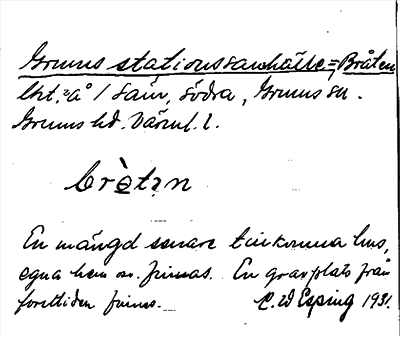 Grums stationssamhälle =, Bråten
lht. på / Saur, södra, Grums sn.
Grums hd. Värml. l.
brὲtən
En mängd senare tillkomna hus,
egna hem m. finnas. En gravplats från
forntiden finns. C. W Esping 1931.